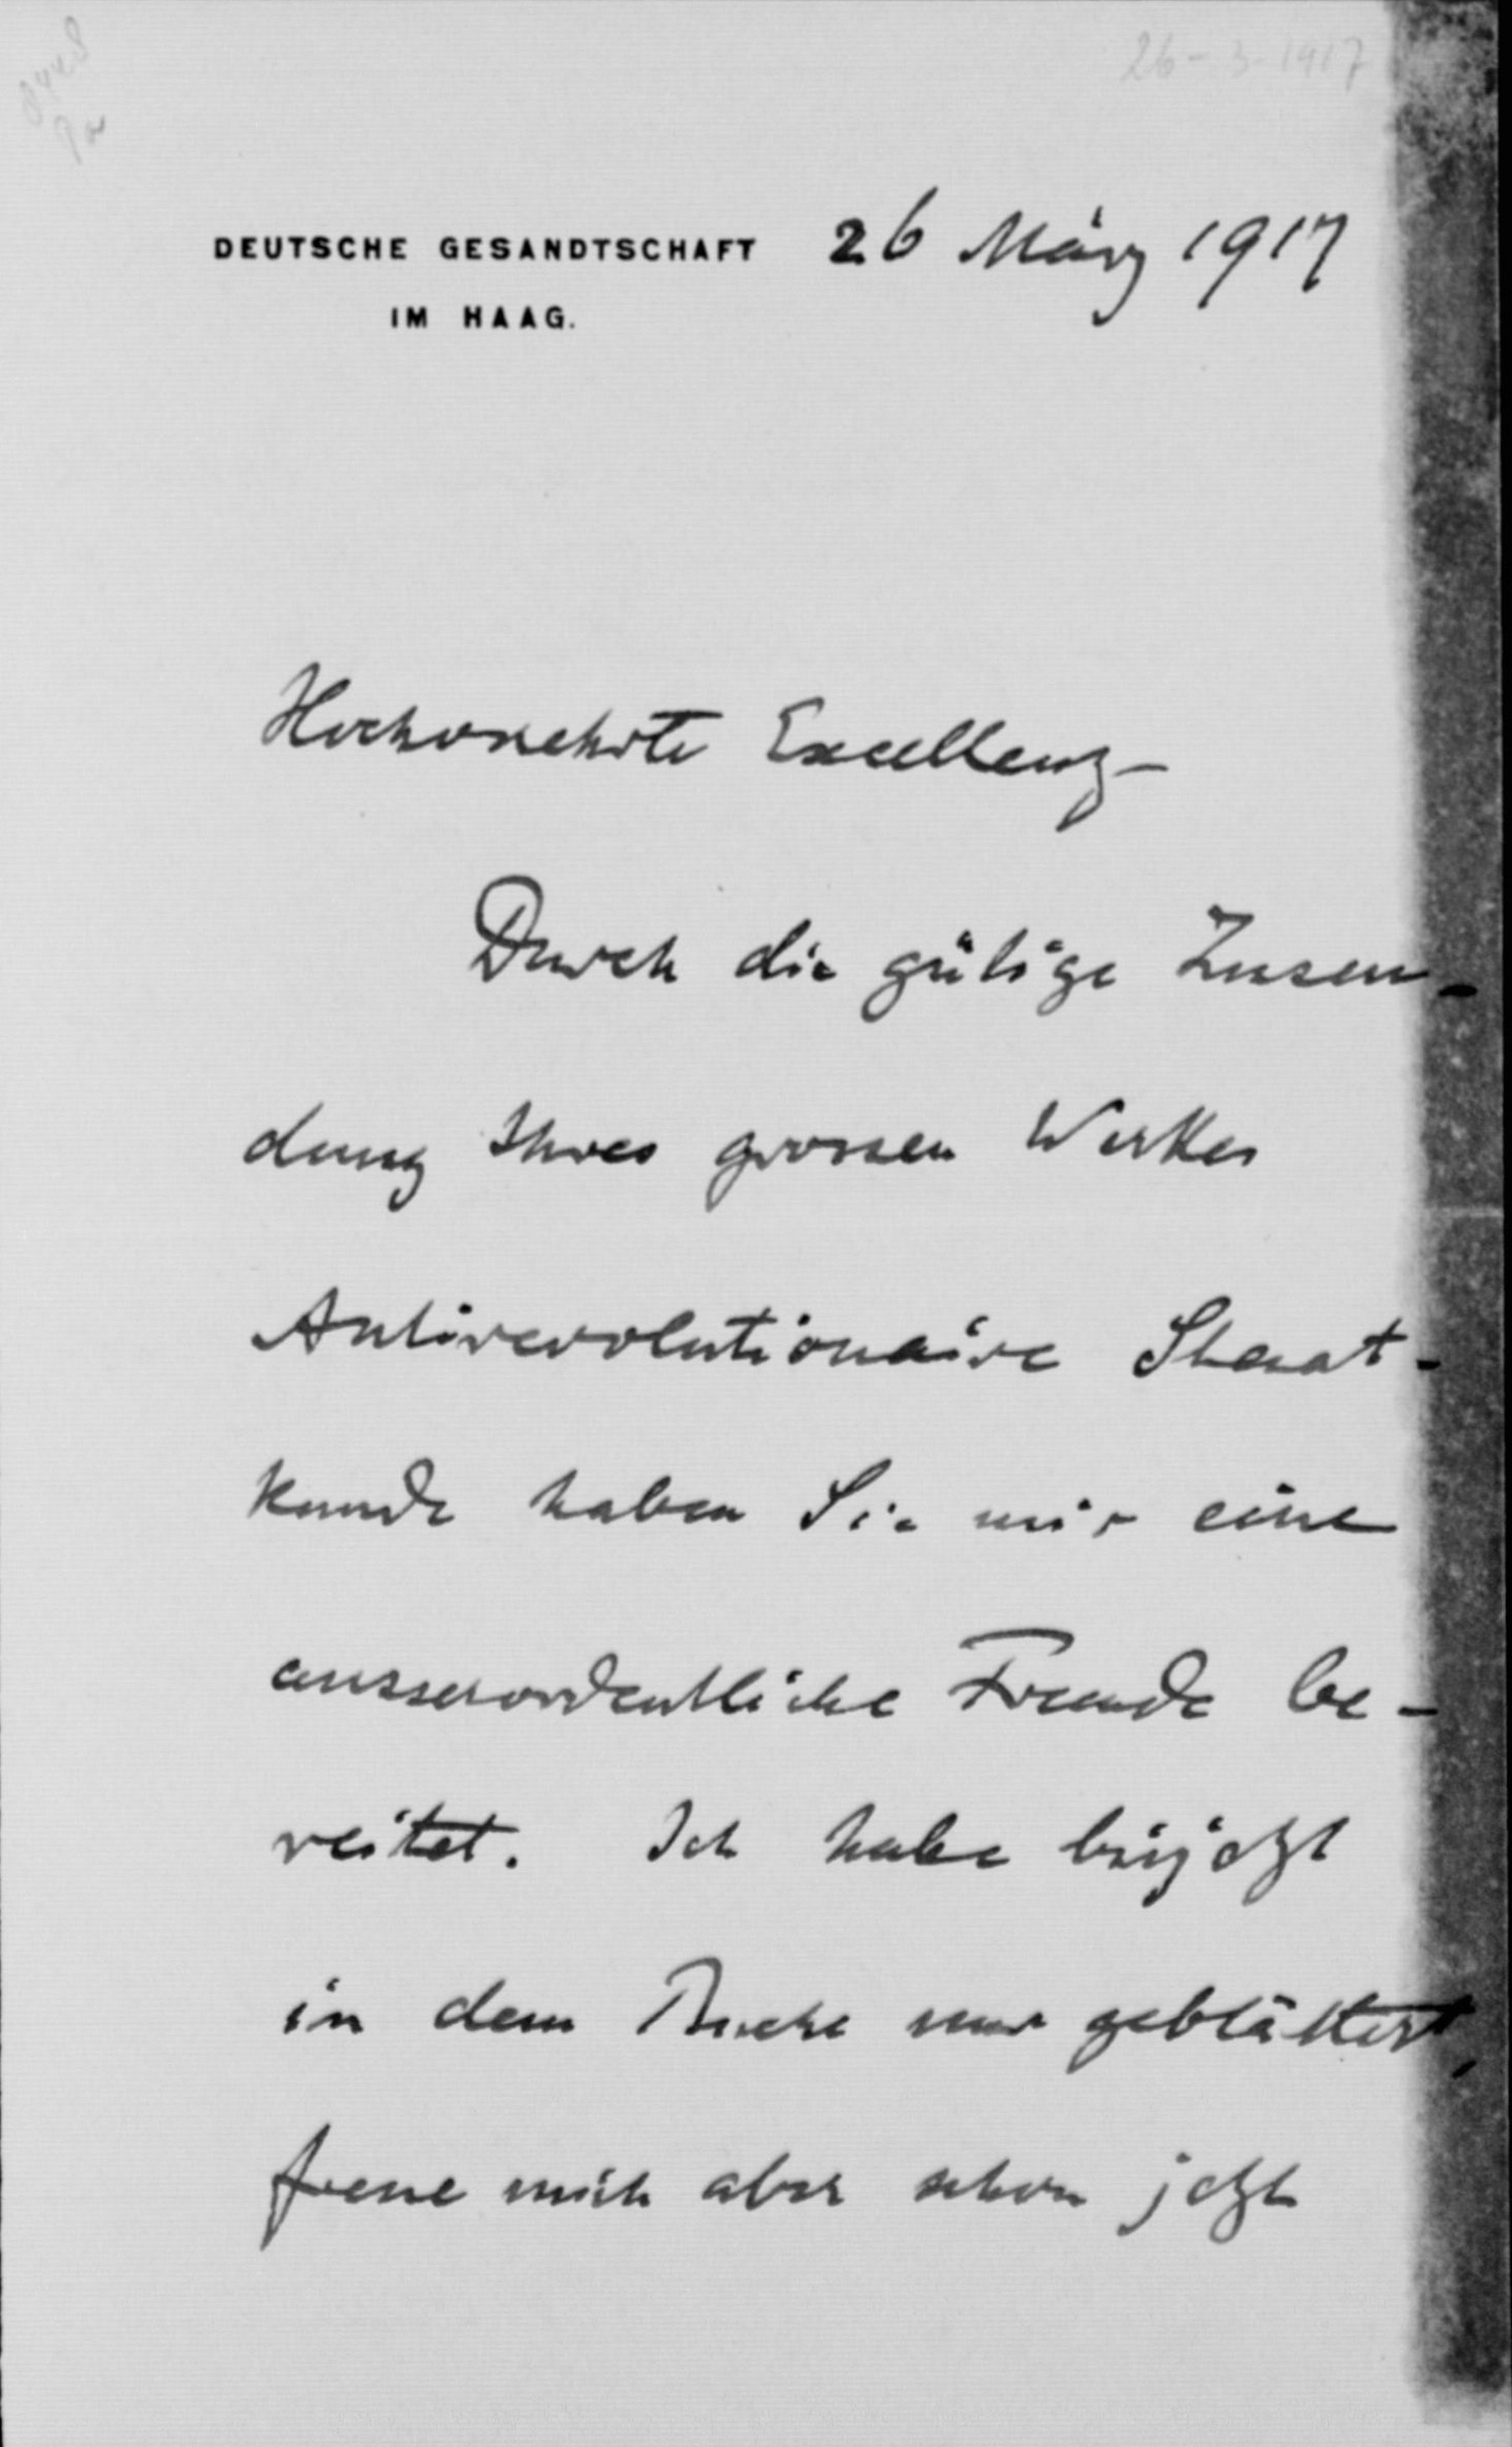 26-3-1917
8448
DEUTSCHE GESANDTSCHAFT 26 März 1917
IM HAAG.
Hochverehrte Excellenz –
Durch die gütige Zusen-
dung Ihres grossen Werkes
Antirevolutionaire Staat-
kunde haben Sie mir eine
ausserordentliche Freude be-
reitet. Ich habe bisjetzt
in dem Buche nur geblättert,
freue mich aber schon jetzt